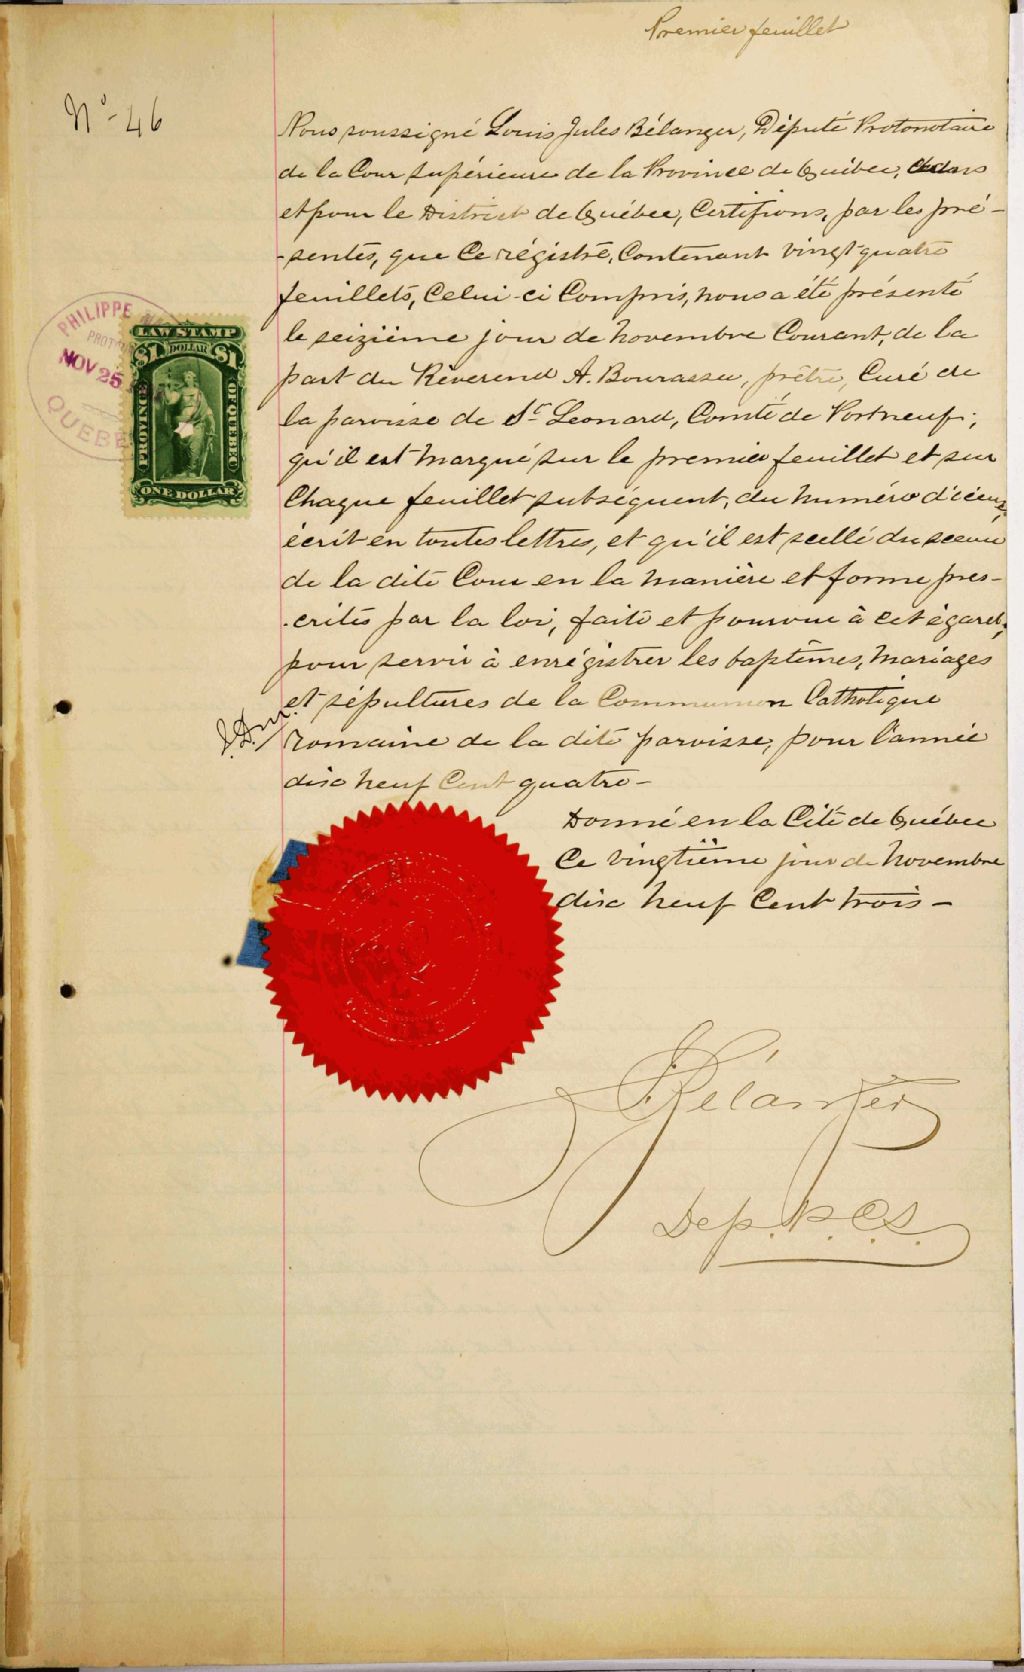 Premier feuillet
No- 46
Nous soussigné Louis Jules Bélanger, Député Protonotaire
de la Cour supérieure de la Province de Québec, dans
et pour le District de Québec, Certifions, par les pré-
-sentes, que ce régistre, Contenant vingt quatre
feuillets, Celui-ci Compris, nous a été présenté
le seizième jour de novembre Courant, de la
part du Réverend A. Bourassa, prêtre, Curé de
la paroisse de St Leonard, Comté de Portneuf;
qu'il est marqué sur le premier feuillet et sur
Chaque feuillet subséquent, du numéro d'iceux,
écrit en toutes lettres, et qu'il est scellé du sceau
de la dite Cour en la manière et forme pres-
-crites par la loi, faite et pourvue à cet égard,
pour servir à enrégistrer les baptêmes, mariages
et sépultures de la Communion Catholique
romaine de la dite paroisse, pour l'année
dix neuf Cent quatre-
Donné en la Cité de Québec
Ce vingtième jour de novembre
dix neuf Cent trois -
Bélanger
Dep. P. C. S.
PHILIPPE
NOV 25
QUEBE
LAW STAMP
$1 DOLLAR $1
PROVINCE
OF QUEBEC
ONE DOLLAR